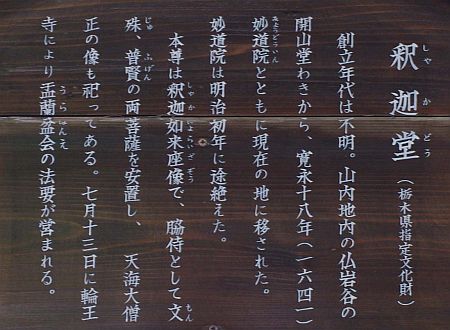 釈迦堂（栃木県指定文化財）
創立年代は不明。山内地内の仏岩谷の
開山堂わきから、寛永十八年（一六四一）
妙道院とともに現在の地に移された。
妙道院は明治初年に途絶えた。
本尊は釈迦如来座像で、脇侍として文
殊、普賢の両菩薩を安置し、天海大僧
正の像も祀ってある。七月十三日に輪王
寺により盂蘭盆会の法要が営まれる。